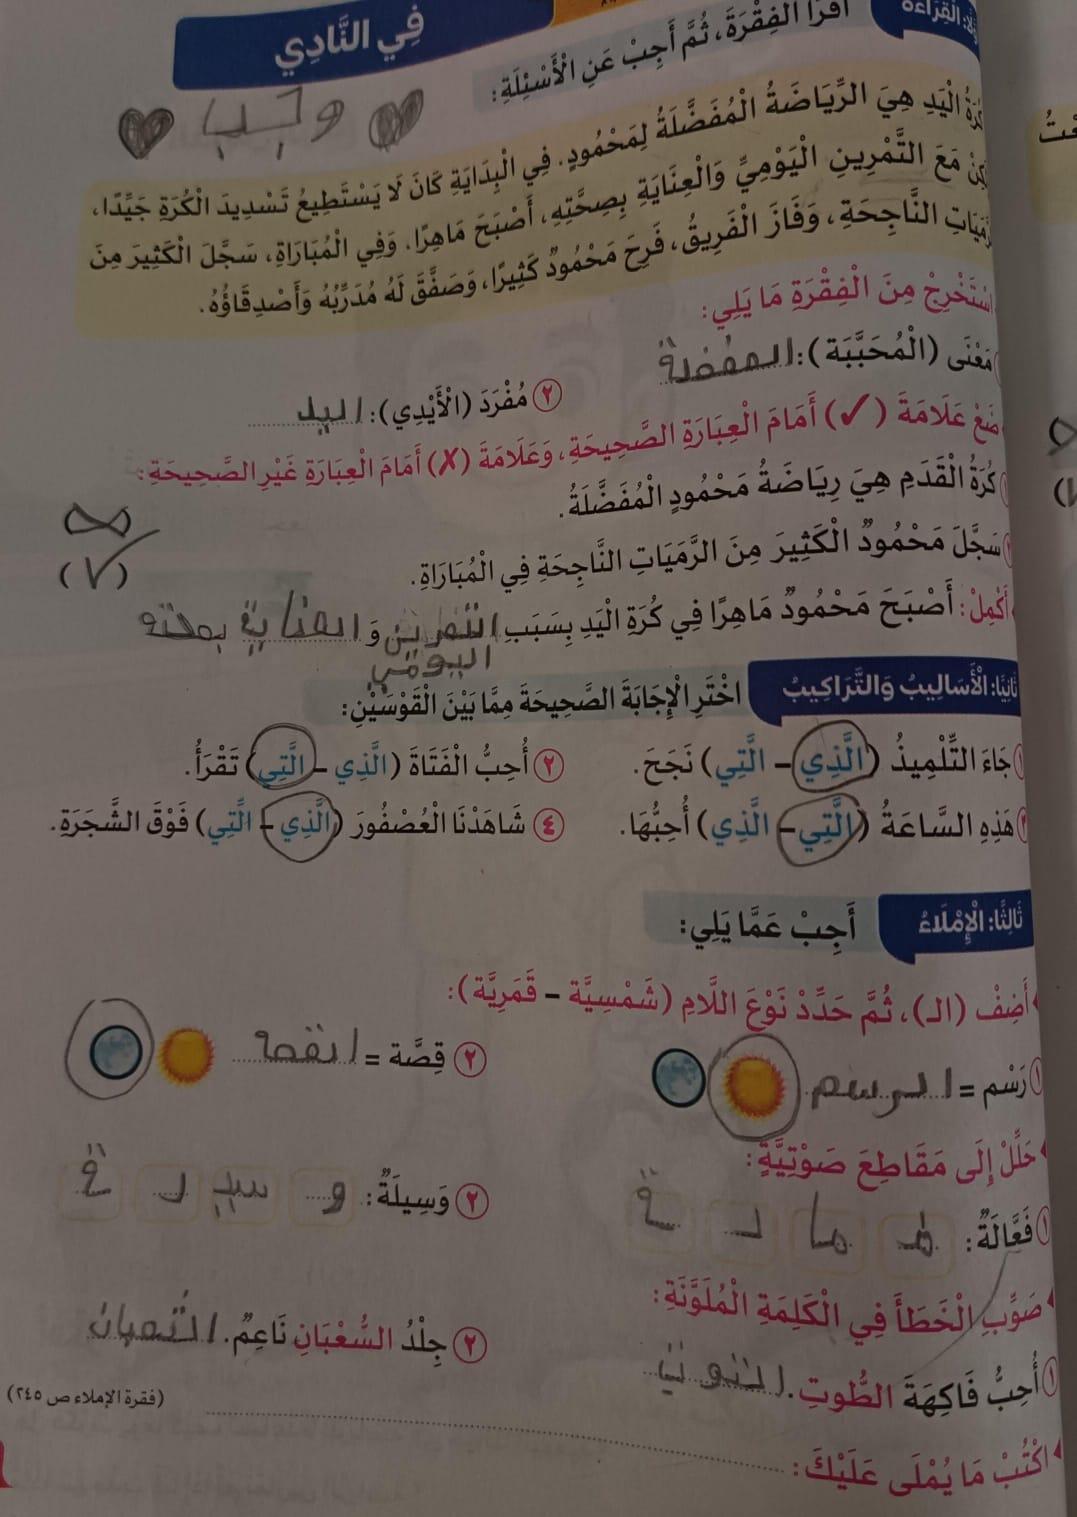 الْقِرَاءَة
اقْرَأِ الْفِقْرَةَ، ثُمَّ أَجِبْ عَنِ الْأَسْئِلَةِ:
فِي النَّادِي
كُرَةُ الْيَدِ هِيَ الرِّيَاضَةُ الْمُفَضَّلَةُ لِمَحْمُودٍ. فِي الْبِدَايَةِ كَانَ لَا يَسْتَطِيعُ تَسْدِيدَ الْكُرَةِ جَيِّدًا،
مَعَ التَّمْرِينِ الْيَوْمِيِّ وَالْعِنَايَةِ بِصِحَّتِهِ، أَصْبَحَ مَاهِرًا. وَفِي الْمُبَارَاةِ، سَجَّلَ الْكَثِيرَ مِنَ
الرَّمَيَاتِ النَّاجِحَةِ، وَفَازَ الْفَرِيقُ، فَرِحَ مَحْمُودٌ كَثِيرًا، وَصَفَّقَ لَهُ مُدَرِّبُهُ وَأَصْدِقَاؤُهُ.
اسْتَخْرِجْ مِنَ الْفِقْرَةِ مَا يَلِي:
مَعْنَى (الْمُحَبَّبَة): المفضلة
٢ مُفْرَدَ (الْأَيْدِي): اليد
ضَعْ عَلَامَةَ (✓) أَمَامَ الْعِبَارَةِ الصَّحِيحَةِ، وَعَلَامَةَ (✗) أَمَامَ الْعِبَارَةِ غَيْرِ الصَّحِيحَةِ:
١ كُرَةُ الْقَدَمِ هِيَ رِيَاضَةُ مَحْمُودٍ الْمُفَضَّلَةُ.
٢ سَجَّلَ مَحْمُودٌ الْكَثِيرَ مِنَ الرَّمَيَاتِ النَّاجِحَةِ فِي الْمُبَارَاةِ. (✓)
أَكْمِلْ: أَصْبَحَ مَحْمُودٌ مَاهِرًا فِي كُرَةِ الْيَدِ بِسَبَبِ التمرين وَ العناية بصحته
اليومي
ثَانِيًا: الْأَسَالِيبُ وَالتَّرَاكِيبُ
اخْتَرِ الْإِجَابَةَ الصَّحِيحَةَ مِمَّا بَيْنَ الْقَوْسَيْنِ:
١ جَاءَ التِّلْمِيذُ (الَّذِي – الَّتِي) نَجَحَ.
٢ أُحِبُّ الْفَتَاةَ (الَّذِي – الَّتِي) تَقْرَأُ.
٣ هَذِهِ السَّاعَةُ (الَّتِي – الَّذِي) أُحِبُّهَا.
٤ شَاهَدْنَا الْعُصْفُورَ (الَّذِي – الَّتِي) فَوْقَ الشَّجَرَةِ.
ثَالِثًا: الْإِمْلَاءُ
أَجِبْ عَمَّا يَلِي:
أَضِفْ (الـ)، ثُمَّ حَدِّدْ نَوْعَ اللَّامِ (شَمْسِيَّة – قَمَرِيَّة):
١ رَسْم = الرسم
٢ قِصَّة = القصة
حَلِّلْ إِلَى مَقَاطِعَ صَوْتِيَّةٍ:
١ فَعَّالَةٌ:
٢ وَسِيلَةٌ: و سيـ لـ ة
صَوِّبِ الْخَطَأَ فِي الْكَلِمَةِ الْمُلَوَّنَةِ:
١ أُحِبُّ فَاكِهَةَ الطُّوتِ. التوت
٢ جِلْدُ السُّعْبَانِ نَاعِمٌ. الثعبان
اكْتُبْ مَا يُمْلَى عَلَيْكَ:
(فقرة الإملاء ص ٢٤٥)